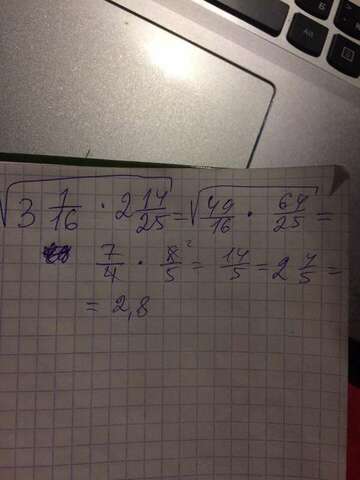 √3 1/16 · 2 14/25 = √49/16 · 64/25 =
7/4 · 8/5 ² = 14/5 = 2 4/5 =
= 2,8